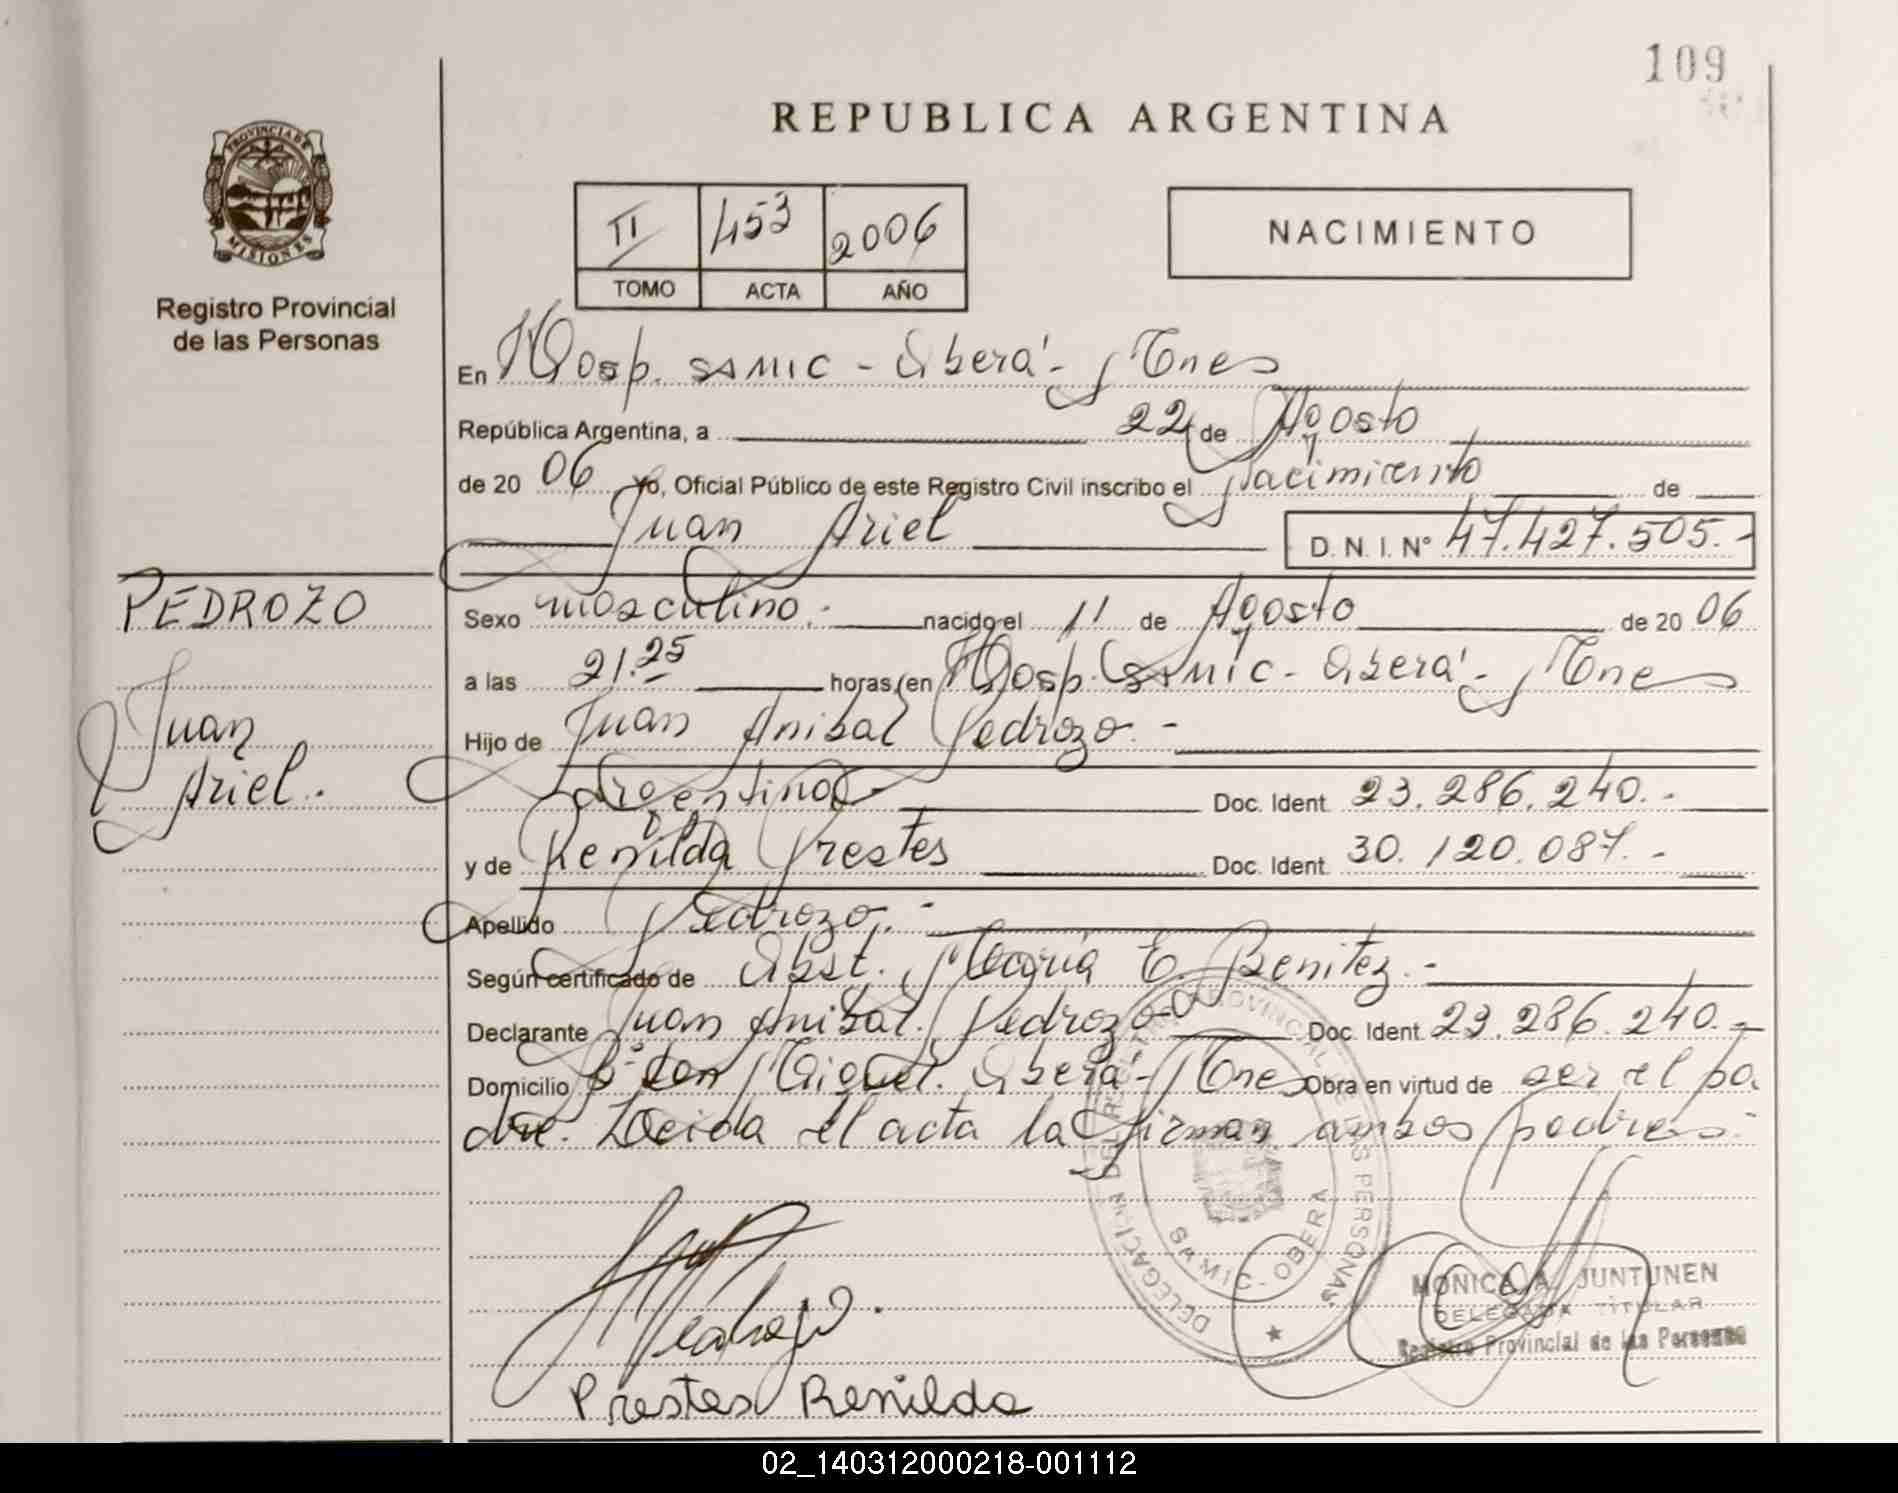 109
REPUBLICA ARGENTINA
PROVINCIA DE
MISIONES
Registro Provincial
de las Personas
II 453 2006
TOMO ACTA AÑO
NACIMIENTO
En Hosp. SAMIC - Oberá - Mnes
República Argentina, a 22 de Agosto
de 20 06 Yo, Oficial Público de este Registro Civil inscribo el Nacimiento de
Juan Ariel D.N.I. Nº 47.427.505.-
PEDROZO
Juan
Ariel.
Sexo masculino.- nacido el 11 de Agosto de 20 06
a las 21.25 horas, en Hosp. SAMIC - Oberá - Mnes
Hijo de Juan Anibal Pedrozo.-
Argentino- Doc. Ident. 23.286.240.-
y de Renilda Prestes Doc. Ident. 30.120.087.-
Apellido Pedrozo.-
Según certificado de Obst. María E. Benitez.-
Declarante Juan Anibal Pedrozo Doc. Ident. 23.286.240.-
Domicilio Bº San Miguel. Oberá - Mnes Obra en virtud de ser el pa
dre. Leida el acta la firman ambos padres.-
DELEGACION DEL REGISTRO PROVINCIAL DE LAS PERSONAS
SAMIC - OBERA
Pedrozo.
Prestes Renilda
MONICA A. JUNTUNEN
DELEGADA TITULAR
Registro Provincial de las Personas
02_140312000218-001112